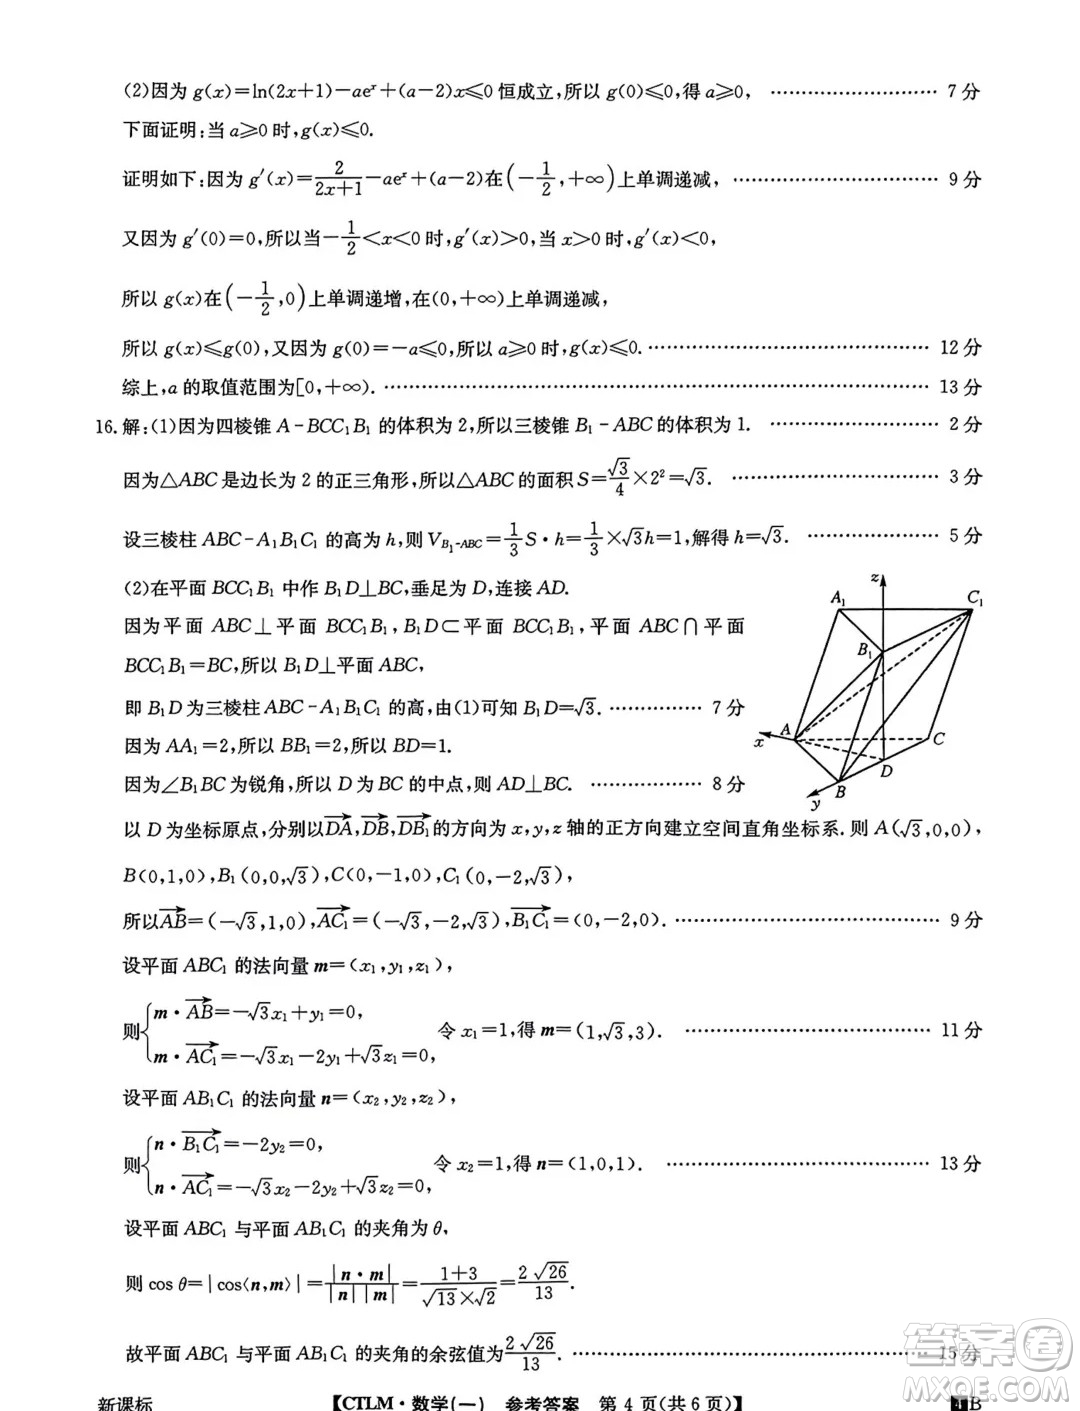 (2)因为 g(x)=ln(2x+1)-aeˣ+(a-2)x≤0 恒成立,所以 g(0)≤0,得 a≥0, ………………………… 7 分
下面证明:当 a≥0 时,g(x)≤0.
证明如下:因为 g′(x)=2/(2x+1)-aeˣ+(a-2)在(-1/2,+∞)上单调递减, ………………………… 9 分
又因为 g′(0)=0,所以当-1/2<x<0 时,g′(x)>0,当 x>0 时,g′(x)<0,
所以 g(x)在(-1/2,0)上单调递增,在(0,+∞)上单调递减,
所以 g(x)≤g(0),又因为 g(0)=-a≤0,所以 a≥0 时,g(x)≤0. ………………………… 12 分
综上,a 的取值范围为[0,+∞). ………………………… 13 分
16.解:(1)因为四棱锥 A-BCC₁B₁ 的体积为 2,所以三棱锥 B₁-ABC 的体积为 1. ………………………… 2 分
因为△ABC 是边长为 2 的正三角形,所以△ABC 的面积 S=√3/4×2²=√3. ………………………… 3 分
设三棱柱 ABC-A₁B₁C₁ 的高为 h,则 V_{B₁-ABC}=1/3 S·h=1/3×√3h=1,解得 h=√3. ………………… 5 分
(2)在平面 BCC₁B₁ 中作 B₁D⊥BC,垂足为 D,连接 AD.
因为平面 ABC⊥平面 BCC₁B₁,B₁D⊂平面 BCC₁B₁,平面 ABC∩平面
BCC₁B₁=BC,所以 B₁D⊥平面 ABC,
即 B₁D 为三棱柱 ABC-A₁B₁C₁ 的高,由(1)可知 B₁D=√3. …………… 7 分
因为 AA₁=2,所以 BB₁=2,所以 BD=1.
因为∠B₁BC 为锐角,所以 D 为 BC 的中点,则 AD⊥BC. ……………… 8 分
z
A₁
C₁
B₁
A
x
C
D
B
y
以 D 为坐标原点,分别以→DA,→DB,→DB₁的方向为 x,y,z 轴的正方向建立空间直角坐标系.则 A(√3,0,0),
B(0,1,0),B₁(0,0,√3),C(0,-1,0),C₁(0,-2,√3),
所以→AB=(-√3,1,0),→AC₁=(-√3,-2,√3),→B₁C₁=(0,-2,0). ………………………… 9 分
设平面 ABC₁ 的法向量 m=(x₁,y₁,z₁),
则{m·→AB=-√3x₁+y₁=0,
m·→AC₁=-√3x₁-2y₁+√3z₁=0, 令 x₁=1,得 m=(1,√3,3). ………………………… 11 分
设平面 AB₁C₁ 的法向量 n=(x₂,y₂,z₂),
则{n·→B₁C₁=-2y₂=0,
n·→AC₁=-√3x₂-2y₂+√3z₂=0, 令 x₂=1,得 n=(1,0,1). ………………………… 13 分
设平面 ABC₁ 与平面 AB₁C₁ 的夹角为 θ,
则 cos θ=|cos⟨n,m⟩|=|n·m|/(|n||m|)=(1+3)/(√13×√2)=2√26/13.
故平面 ABC₁ 与平面 AB₁C₁ 的夹角的余弦值为2√26/13. ………………………… 15分
答案圈
新课标 【CTLM·数学(一) 参考答案 第 4 页(共 6 页)】 B